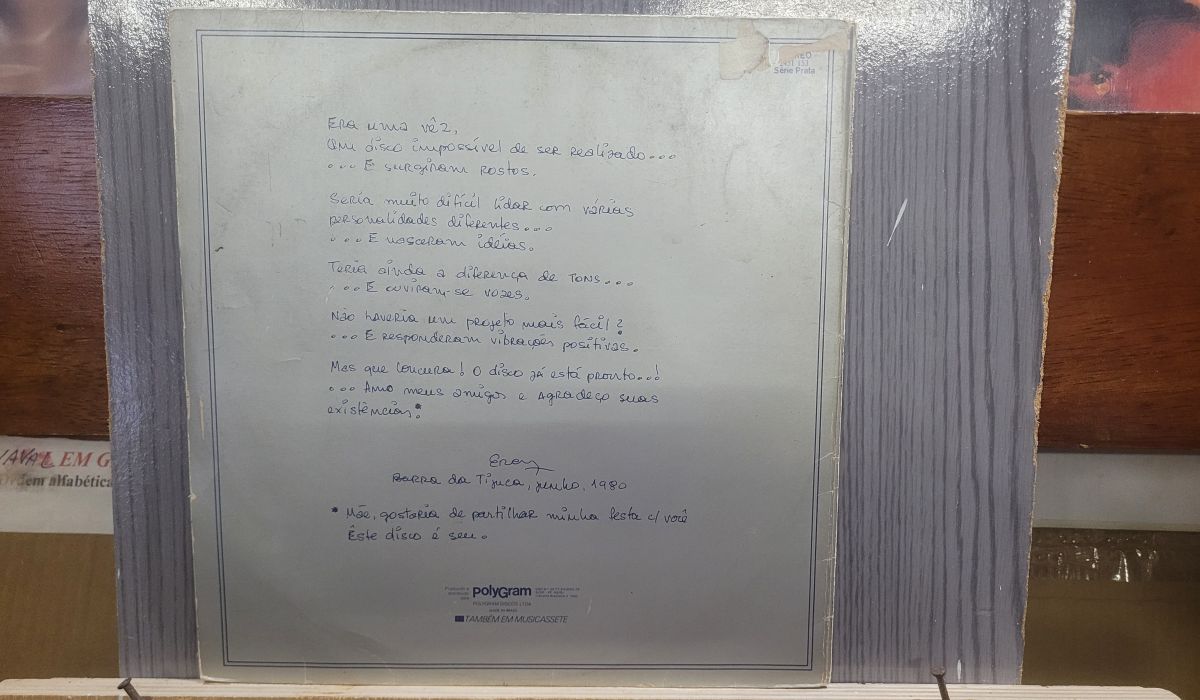 Série Prata
Era uma vêz,
Um disco impossível de ser realizado...
...E surgiram rostos.
Seria muito difícil lidar com várias
personalidades diferentes...
...E nasceram idéias.
Teria ainda a diferença de TONS...
...E ouviram-se vozes.
Não haveria um projeto mais fácil?
...E responderam vibrações positivas.
Mas que loucura! O disco já está pronto...!
...Amo meus amigos e agradeço suas
existências*
Barra da Tijuca, junho, 1980
* Mãe, gostaria de partilhar minha festa c/ você
Êste disco é seu.
polyGram
POLYGRAM DISCOS LTDA
TAMBÉM EM MUSICASSETE
EM G
ordem alfabética